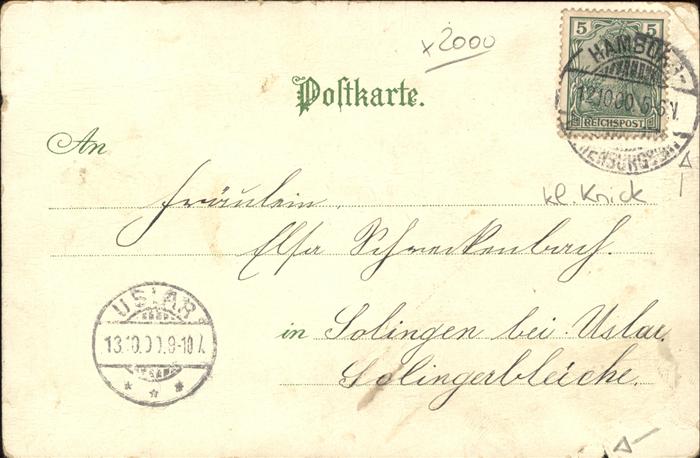 x2000
5 5
HAMBURG
12.10.00.5-6 V.
REICHSPOST
Postkarte.
An
Fräulein
kl. Knick
Elsa Schreckenbach.
USLAR
13.10.00.9-10 V.
in Solingen bei Uslar.
Solingerbleiche.